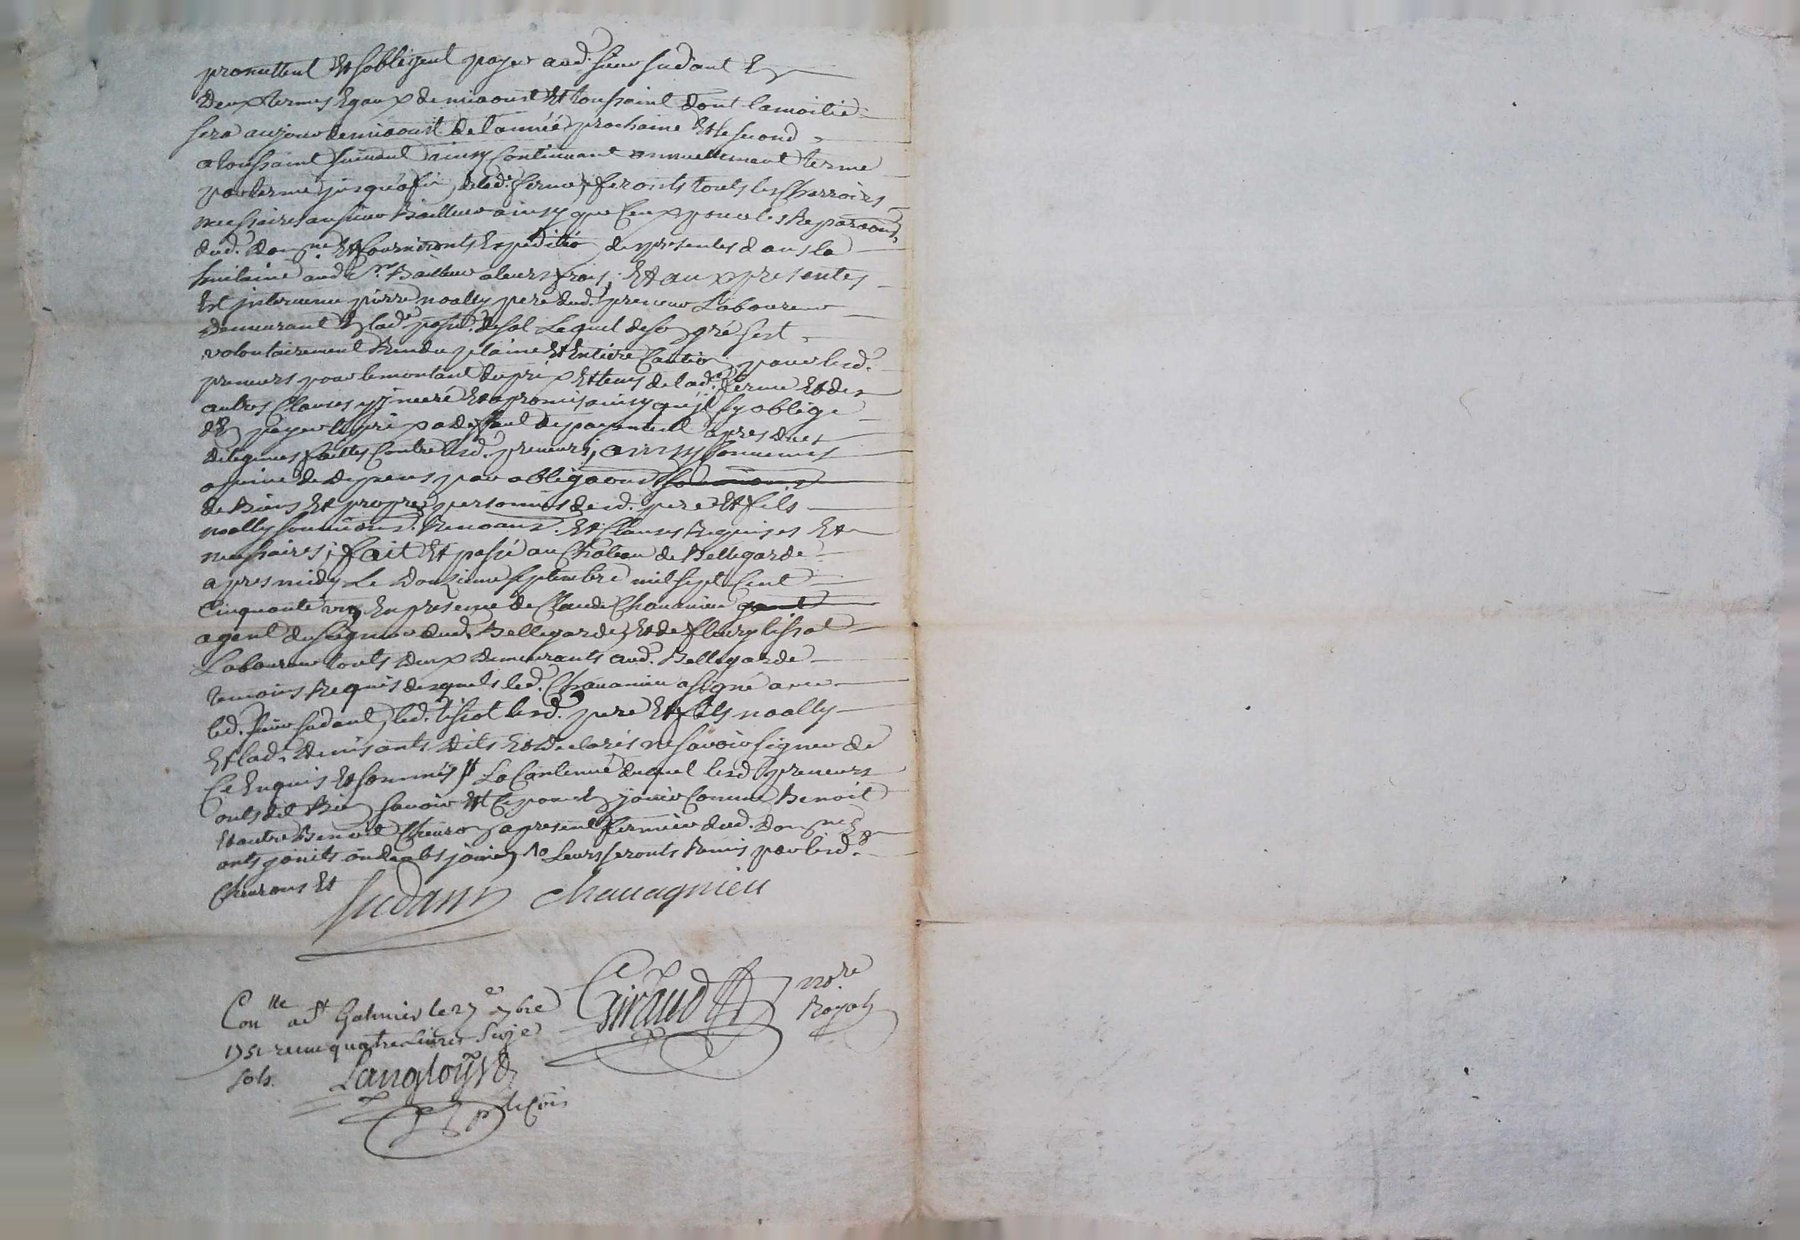 promettent et sobligent payer aud. sieur sudant En
Deux termes Egaux de miaoust et toussaint dont la moitié
sera au jour de miaoust de l'année prochaine et le second
a toussaint suivant ainsy continuant annuellement terme
par terme jusqu'a fin de lad. ferme, feronts touts les charrois
necessaires au sieur Bailleur ainsy que ceux pour les Reparaons
dud. domne et fournironts Expeditio des presentes dans la
huitaine aud. sr Bailleur a leurs frois, Et aux presentes
Est intervenu pierre noally pere dud. preneur Laboureur
Demeurant En lad. paroi. de sal Lequel de son gré sest
volontairement Rendu plaine et Entiere Cautio pour lesd.
preneurs pour le montant du prix et tems de lad. ferme et des
autres Clauses y inseré et a promis ainsy qu'il sy oblige
d'En payer le prix a deffaut de payement apres dues
diligences faittes contre lesd. preneurs, ainsy Convenus
a peine de depens par obligaons
de Biens Et propres personnes desd. pere et fils
noally soumions. Renoans. et Clauses Requises Et
necessaires; fait Et passé au Château de Bellegarde
apres midy Le Douzieme septembre mil sept Cent
Cinquante un En presence de Claude Chavanieu
agent du seigneur dud. Bellegarde, et de fleury tissot
Laboureur touts deux demeurants aud. Bellegarde
temoins Requis desquels led. Chavanieu a signé avec
led. sieur sudant, led. tissot lesd. pere et fils noally
Et lad. Denis ants dits et declarés ne savoir signer de
Ce Enquis et sommés // La Contenue duquel lesd. preneurs
onts dit Bien savoir et Ce pour En jouir Comme Benoit
et autre Benoit Cheuron a present fermiers dud. domne En
onts jouits ou deub jouir, Leurs seronts Remis par lesd.
Cheurons Et
Sudant chauagnieu
Giraud nore
Royal
Conlle a st Galmier le 27e 7bre
1751 recu quatre Livres seize
sols. Langloys